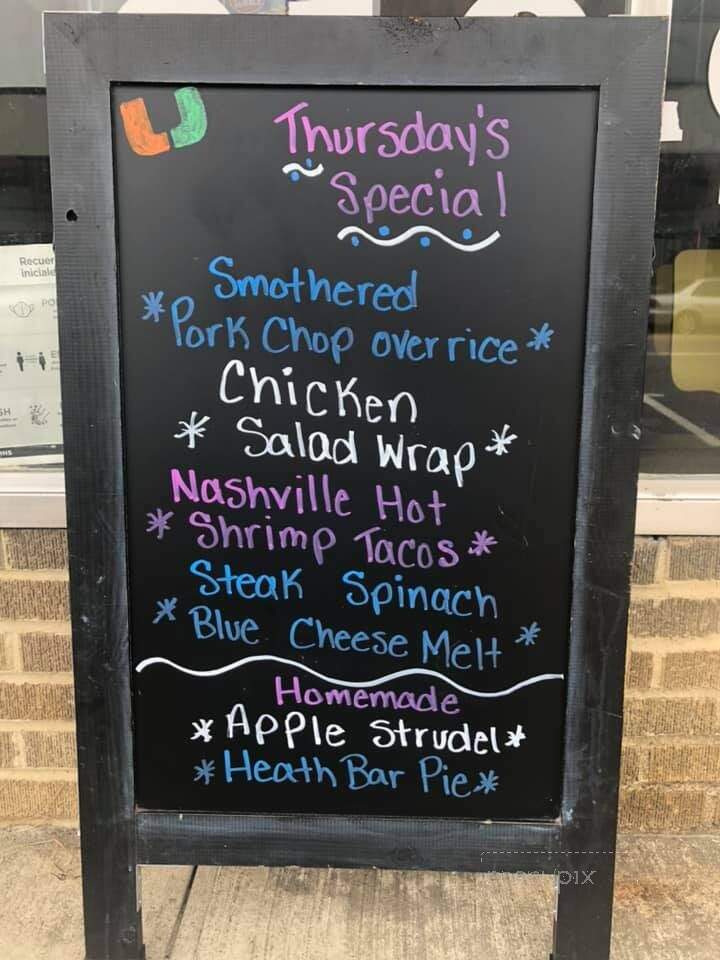 Thursday's
Special
Smothered
*Pork Chop over rice*
Chicken
* Salad Wrap*
Nashville Hot
* Shrimp Tacos*
Steak Spinach
* Blue Cheese Melt *
Homemade
*Apple Strudel*
*Heath Bar Pie*
Recuer
iniciale